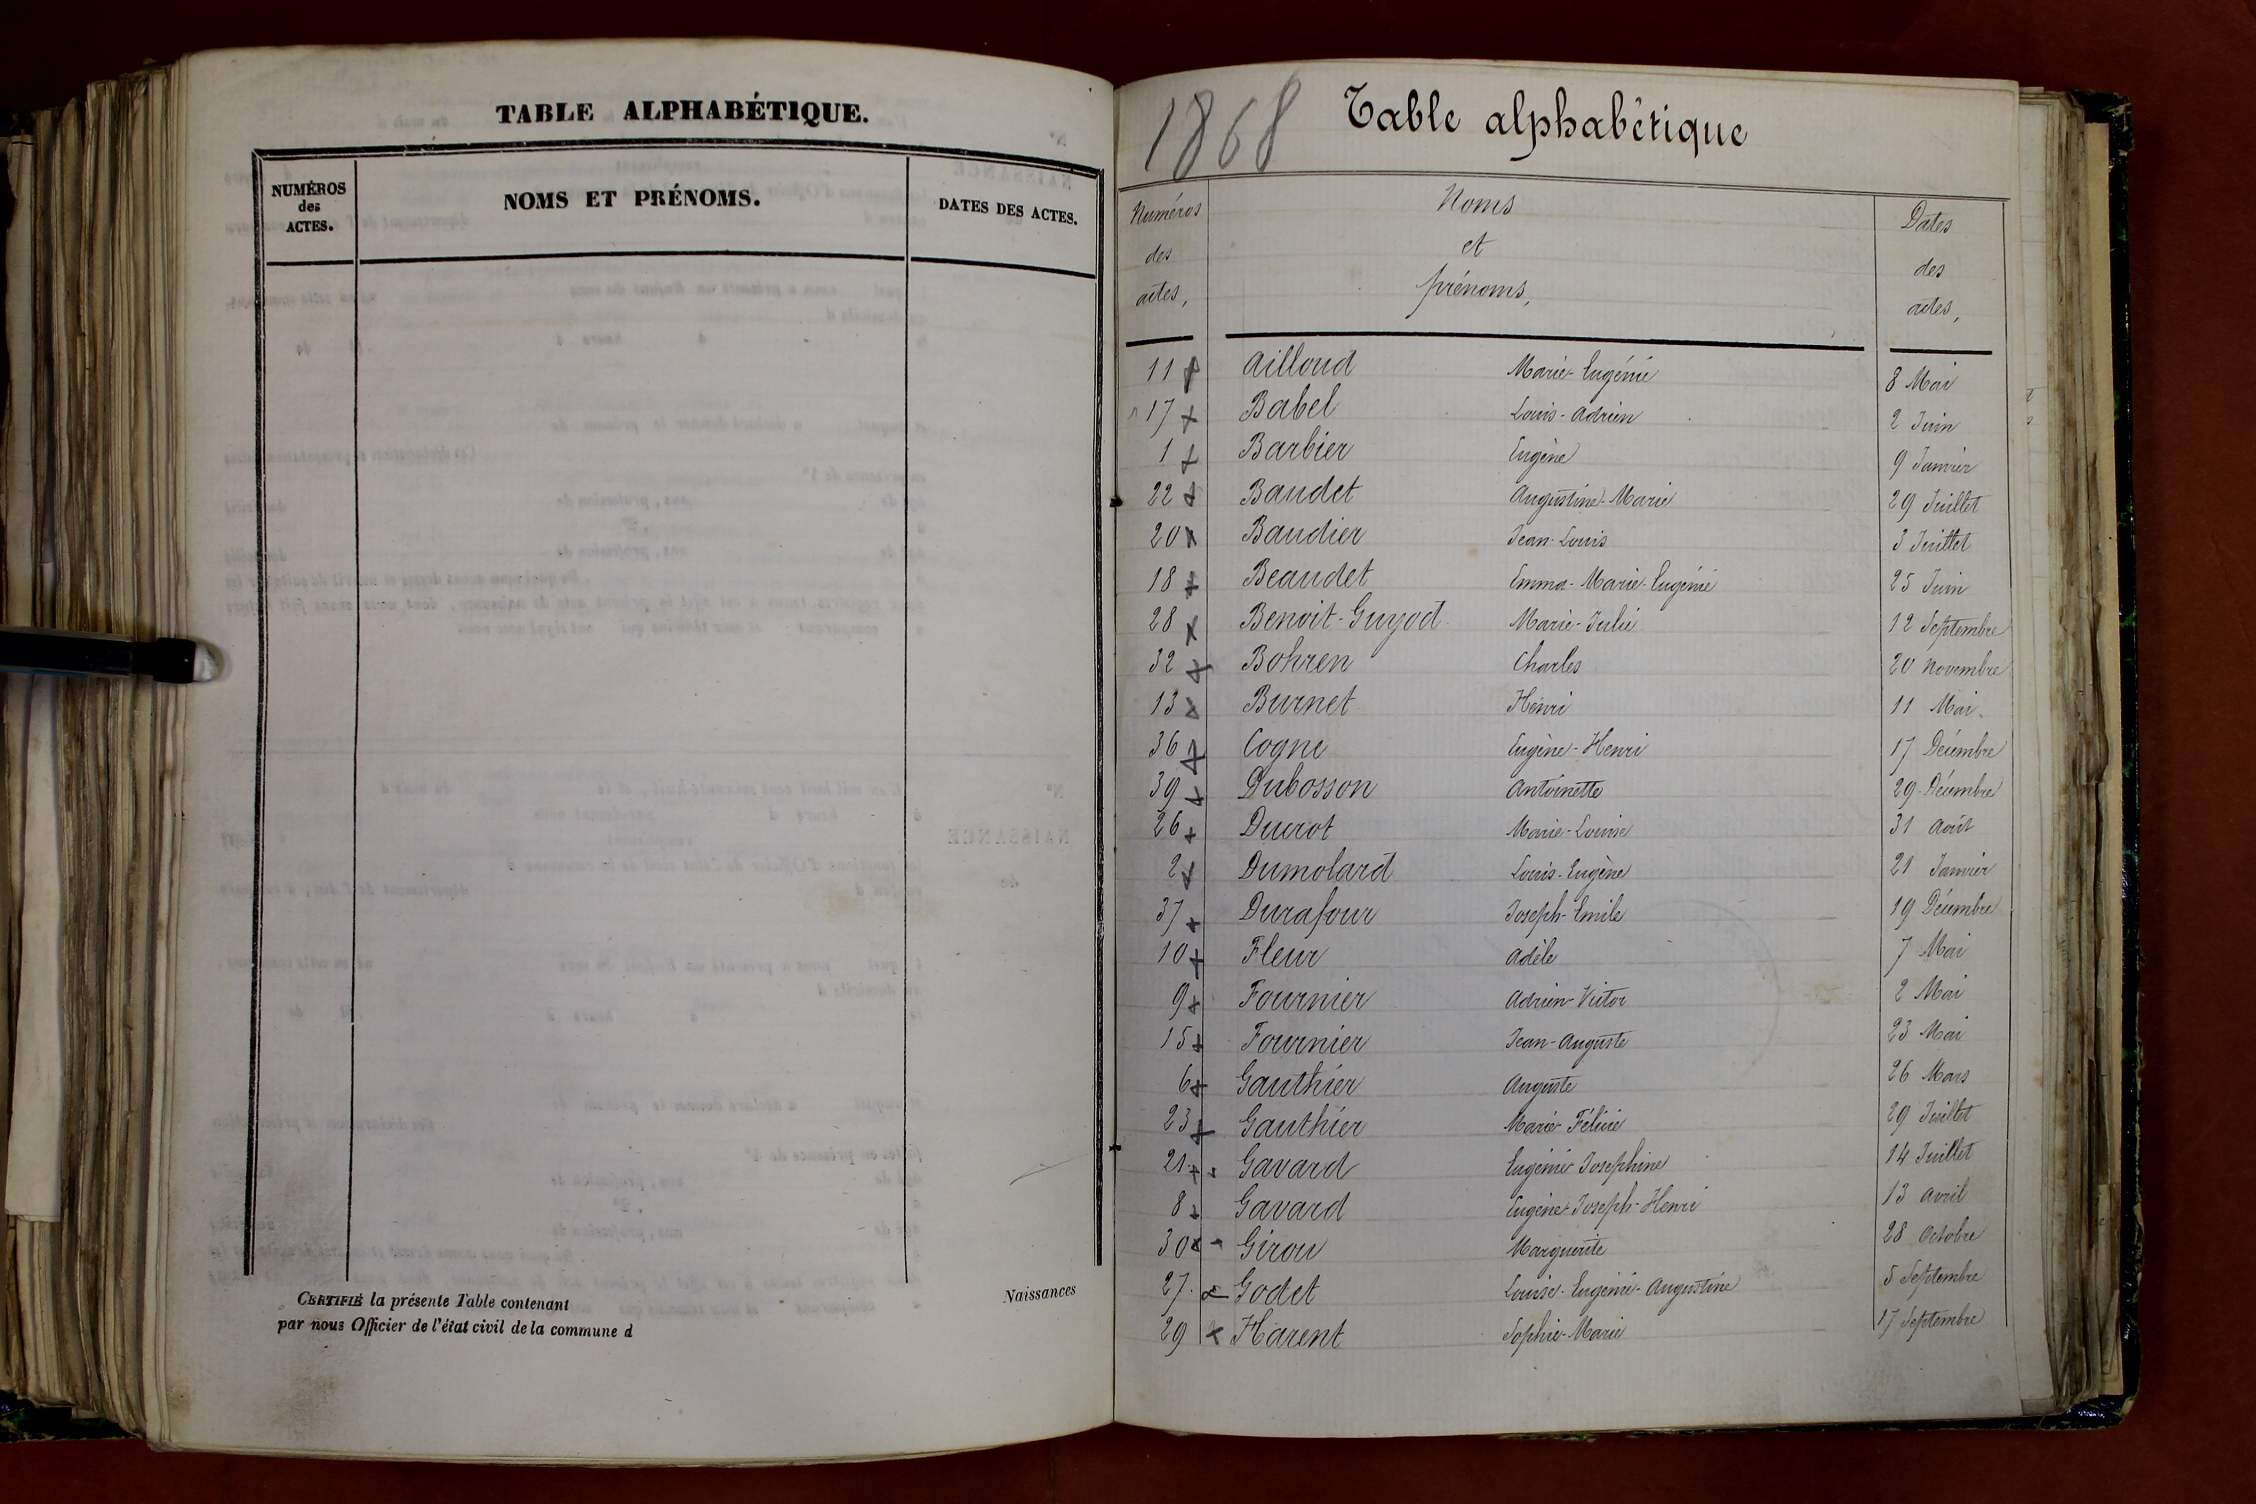 TABLE ALPHABÉTIQUE.
NUMÉROS
des
ACTES.
NOMS ET PRÉNOMS.
DATES DES ACTES.
CERTIFIÉ la présente Table contenant
Naissances
par nous Officier de l'état civil de la commune d
1868 Table alphabétique
Numéros
des
actes,
Noms
et
prénoms,
Dates
des
actes,
11 Ailloud Marie-Eugénie 8 Mai
17 Babel Louis-Adrien 2 Juin
1 Barbier Eugène 9 Janvier
22 Baudet Augustine-Marie 29 Juillet
20 Baudier Jean-Louis 3 Juillet
18 Beaudet Emma-Marie-Eugénie 25 Juin
28 Benoit-Guyod Marie-Julie 12 Septembre
32 Bohren Charles 20 Novembre
13 Burnet Henri 11 Mai
36 Cogne Eugène-Henri 17 Décembre
39 Dubosson Antoinette 29 Décembre
26 Ducrot Marie-Louise 31 Août
2 Dumolard Louis-Eugène 21 Janvier
37 Durafour Joseph-Emile 19 Décembre
10 Fleur Adèle 7 Mai
9 Fournier Adrien-Victor 2 Mai
15 Fournier Jean-Auguste 23 Mai
6 Gauthier Auguste 26 Mars
23 Gauthier Marie-Félicie 29 Juillet
21 Gavard Eugénie-Josephine 14 Juillet
8 Gavard Eugène-Joseph-Henri 13 Avril
30 Girou Marguerite 28 Octobre
27 Godet Louise-Eugénie-Augustine 5 Septembre
29 Harent Sophie-Marie 17 Septembre